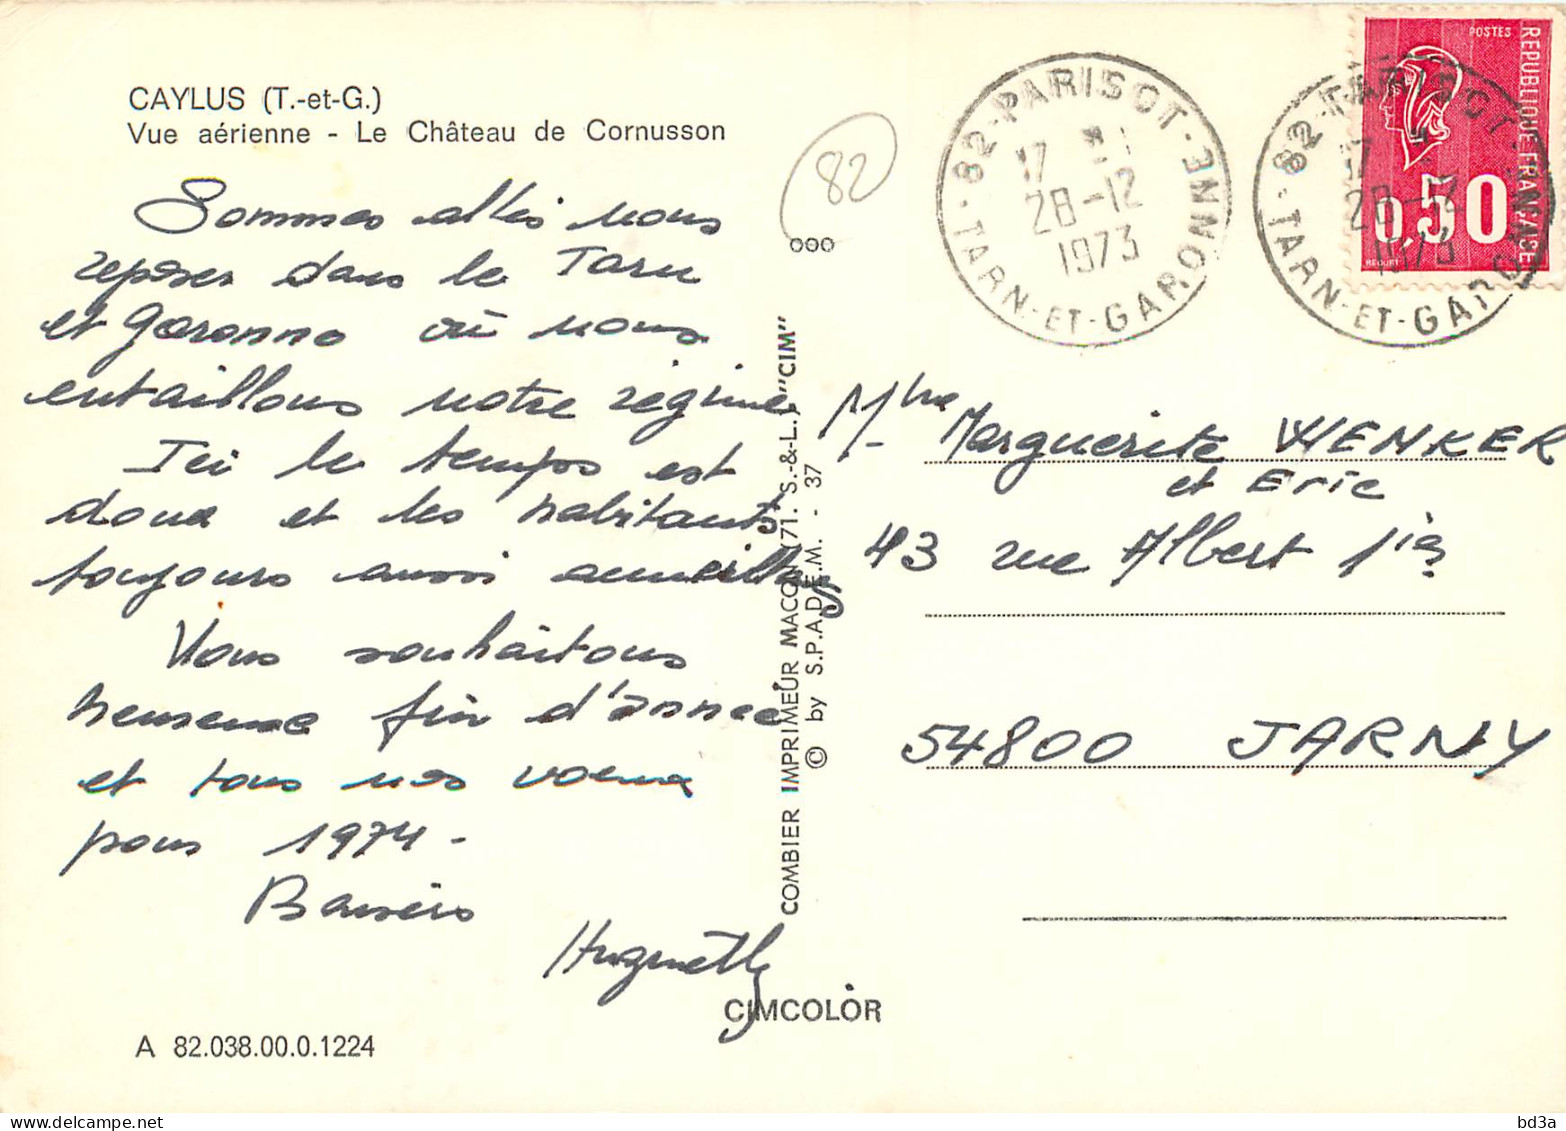 CAYLUS (T.-et-G.)
Vue aérienne - Le Château de Cornusson
Sommes allés nous
reposer dans le Tarn
et Garonne où nous
entaillons notre régime
Ici le temps est
doux et les habitants
toujours aussi
Vous souhaitons
heureuse fin d'année
et tous nos voeux
pour 1974 -
Baisers
Huguette
A 82.038.00.0.1224
82
000
COMBIER IMPRIMEUR MACON (71. S.-&-L.) "CIM"
© by S.P.A.D.E.M. - 37
CIMCOLOR
82-PARISOT-
TARN-ET-GARONNE
17
28-12
1973
82-PARISOT-
TARN-ET-GARONNE
17
28-12
1973
POSTES
REPUBLIQUE FRANÇAISE
0,50
BEQUET
Mme Marguerite WENKER
et Eric
43 rue Albert 1ier
54800 JARNY
bd3a